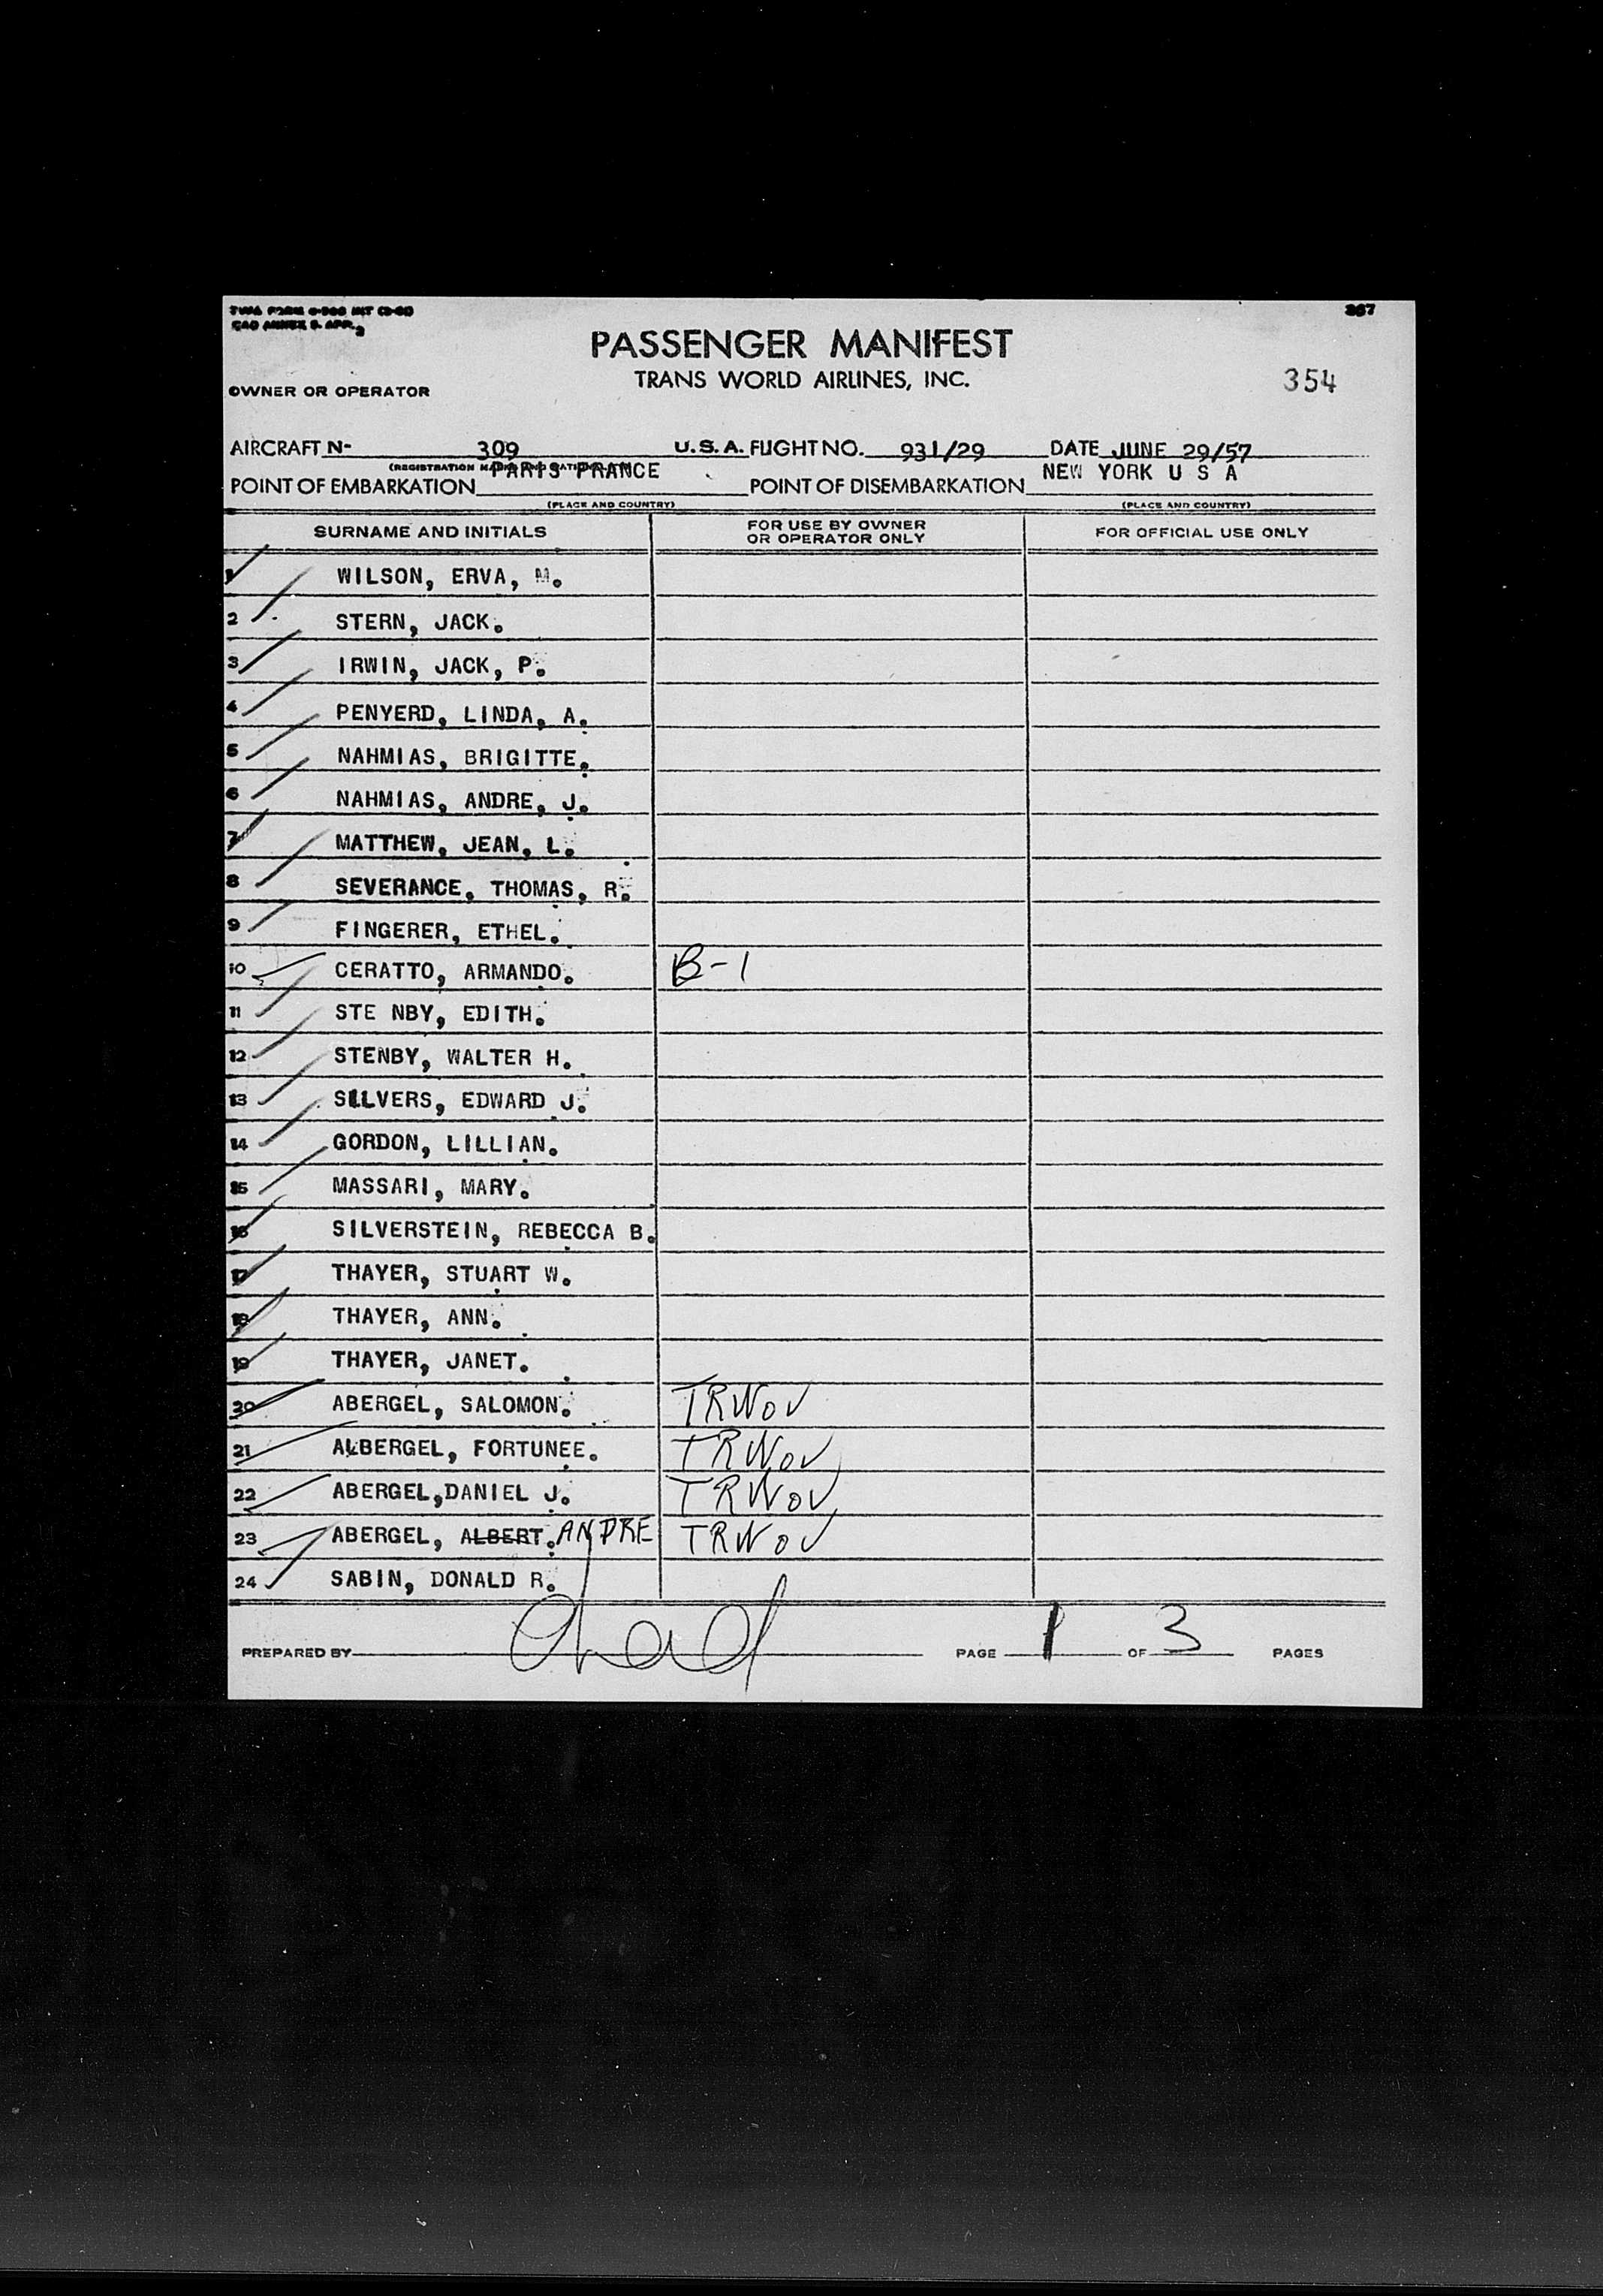 357
PASSENGER MANIFEST
TRANS WORLD AIRLINES, INC.
354
OWNER OR OPERATOR
AIRCRAFT N- 309 U.S.A. FLIGHT NO. 931/29 DATE JUNE 29/57
POINT OF EMBARKATION PARIS FRANCE POINT OF DISEMBARKATION NEW YORK U S A
(PLACE AND COUNTRY) (PLACE AND COUNTRY)
SURNAME AND INITIALS FOR USE BY OWNER OR OPERATOR ONLY FOR OFFICIAL USE ONLY
1 WILSON, ERVA, M.
2 STERN, JACK.
3 IRWIN, JACK, P.
4 PENYERD, LINDA, A.
5 NAHMIAS, BRIGITTE.
6 NAHMIAS, ANDRE, J.
7 MATTHEW, JEAN, L.
8 SEVERANCE, THOMAS, R.
9 FINGERER, ETHEL.
10 CERATTO, ARMANDO. B-1
11 STE NBY, EDITH.
12 STENBY, WALTER H.
13 SILVERS, EDWARD J.
14 GORDON, LILLIAN.
15 MASSARI, MARY.
16 SILVERSTEIN, REBECCA B.
17 THAYER, STUART W.
18 THAYER, ANN.
19 THAYER, JANET.
20 ABERGEL, SALOMON. TRWOV
21 ALBERGEL, FORTUNEE. TRWOV
22 ABERGEL,DANIEL J. TRWOV
23 ABERGEL, ALBERT. ANDRE TRWOV
24 SABIN, DONALD R.
PREPARED BY PAGE 1 OF 3 PAGES